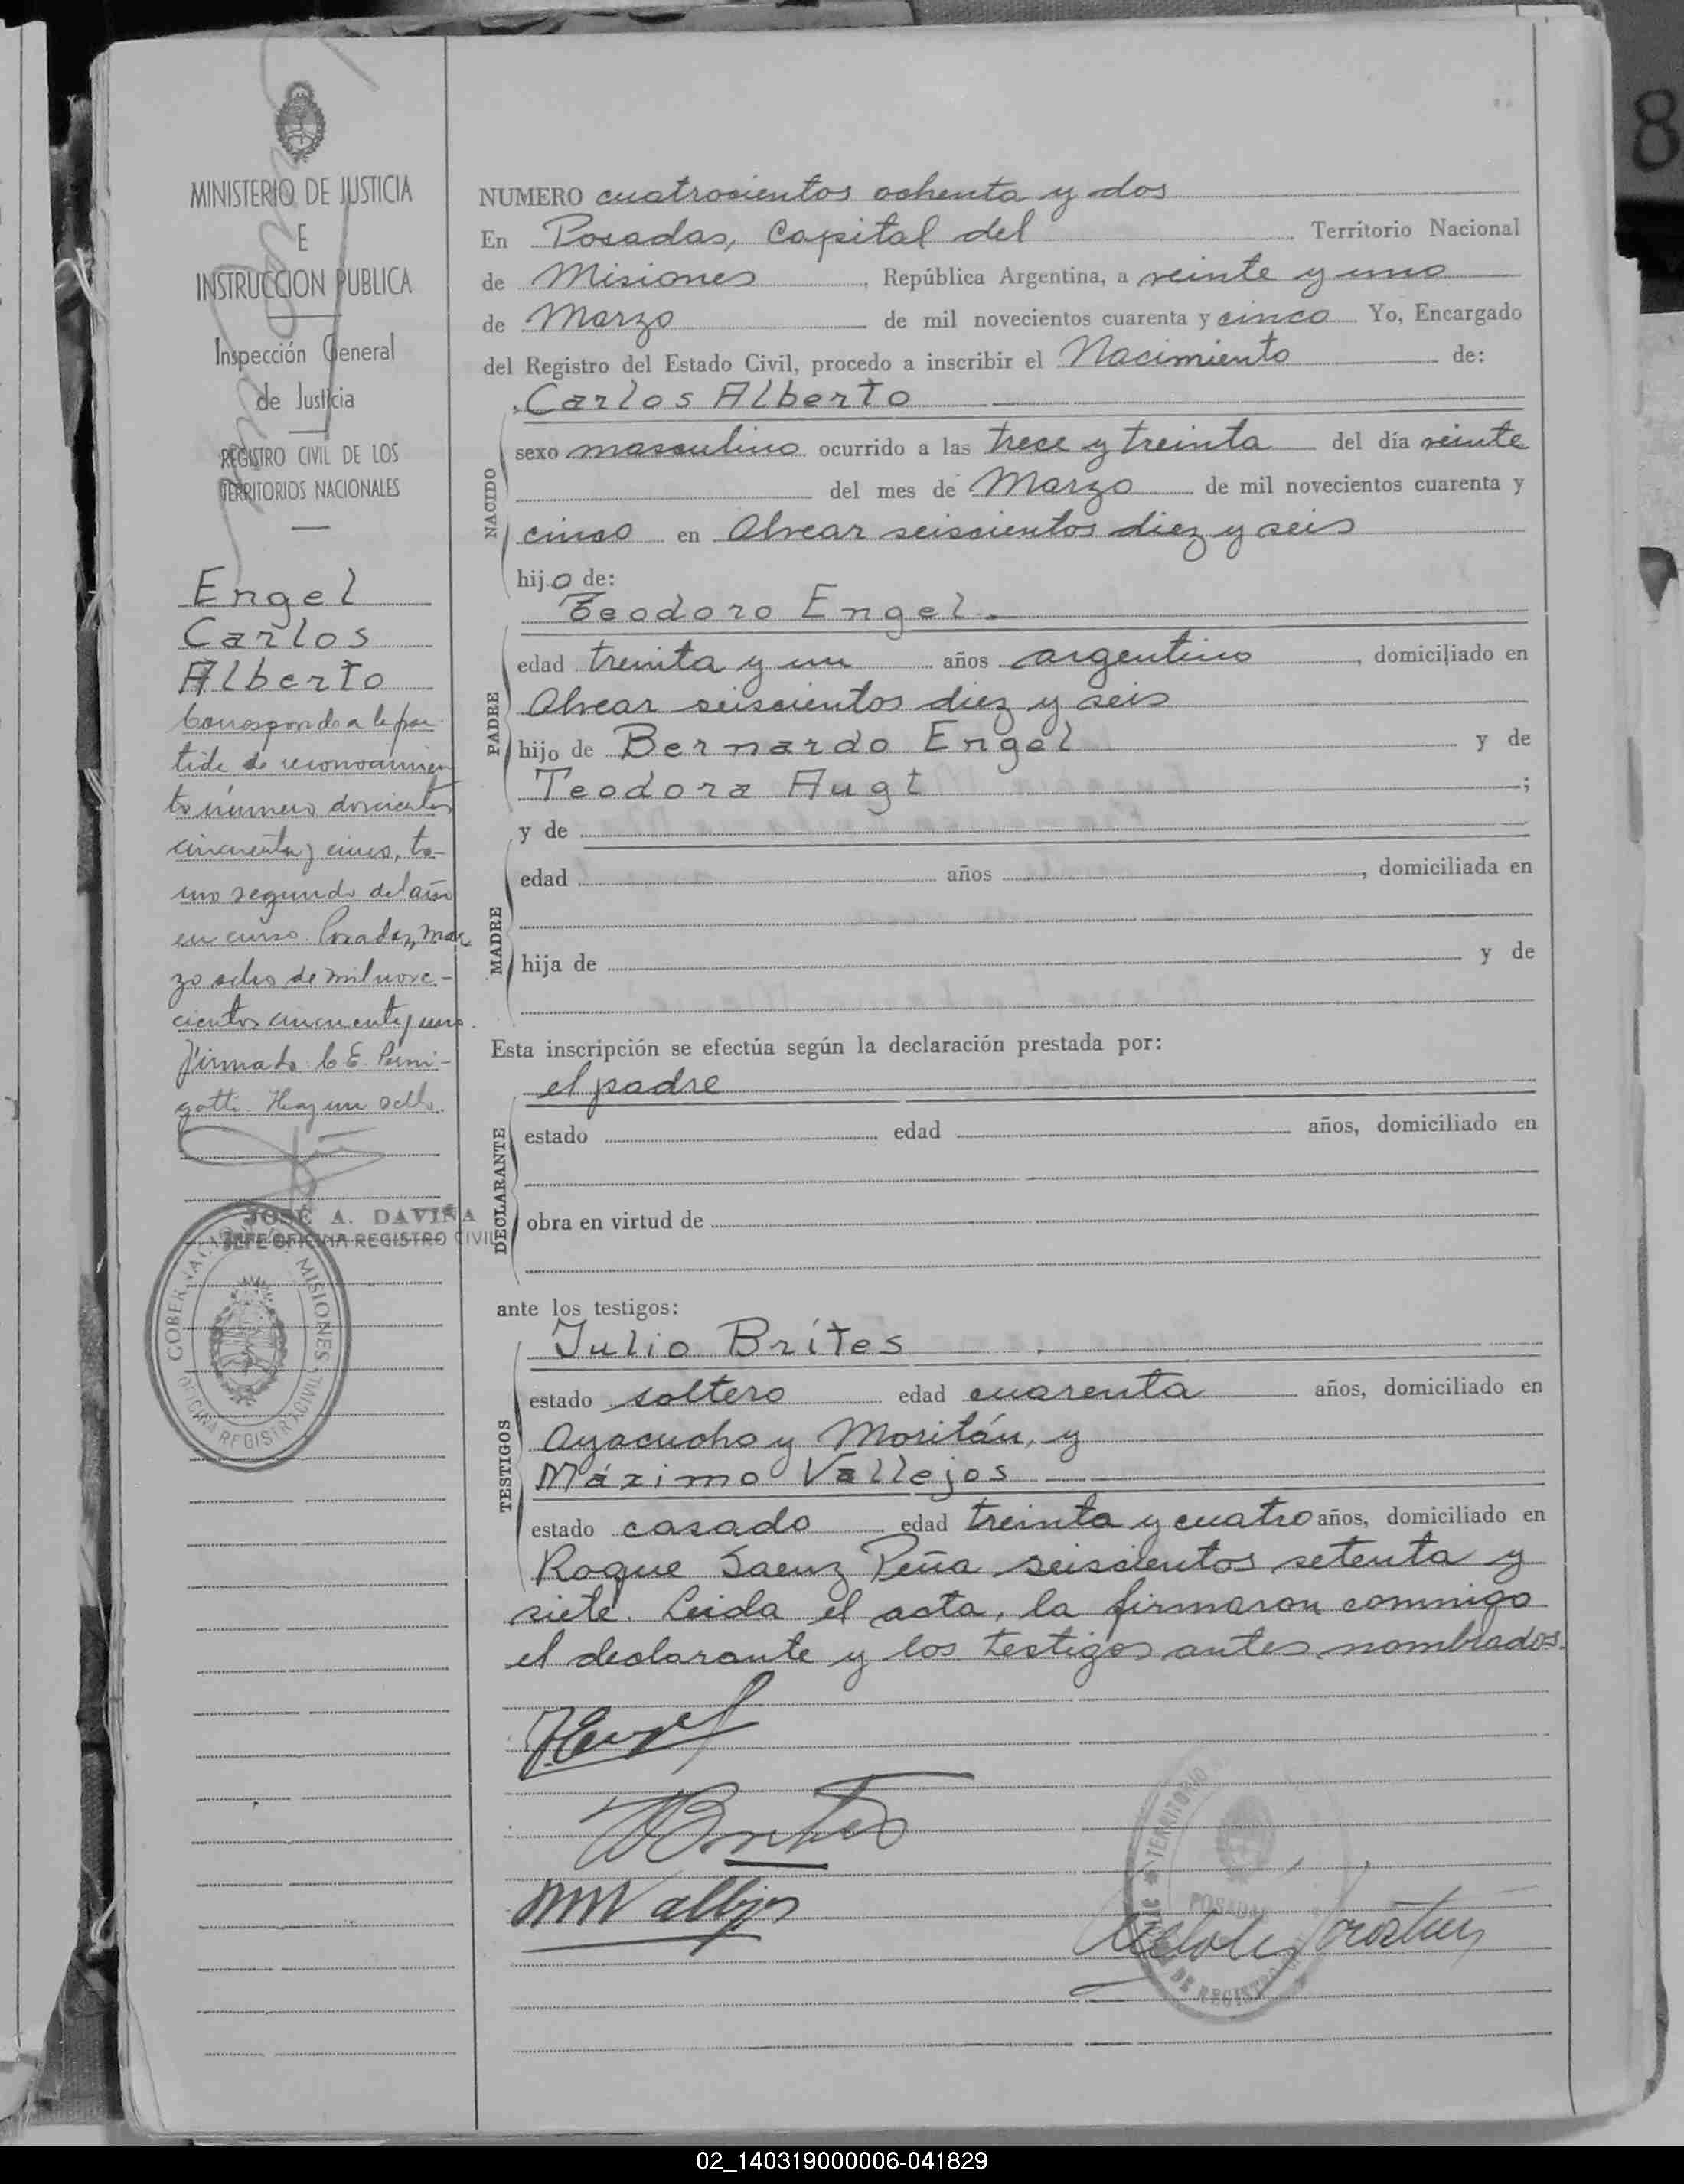 8
MINISTERIO DE JUSTICIA
E
INSTRUCCION PUBLICA
Inspección General
de Justicia
REGISTRO CIVIL DE LOS
TERRITORIOS NACIONALES
Engel
Carlos
Alberto
Corresponde a la par-
tida de reconocimien
to número doscientos
cincuenta y cinco, to-
mo segundo del año
en curso. Posadas, mar
zo ocho de mil nove-
cientos cincuenta y uno.
Firmado C. E.
Hay un sello.
JOSÉ A. DAVIÑA
JEFE OFICINA REGISTRO CIVIL
GOBERNACION MISIONES
OFICINA REGISTRO CIVIL
NUMERO cuatrocientos ochenta y dos
En Posadas, Capital del Territorio Nacional
de Misiones, República Argentina, a veinte y uno
de Marzo de mil novecientos cuarenta y cinco Yo, Encargado
del Registro del Estado Civil, procedo a inscribir el Nacimiento de:
NACIDO
Carlos Alberto
sexo masculino ocurrido a las trece y treinta del día veinte
del mes de Marzo de mil novecientos cuarenta y
cinco en Alvear seiscientos diez y seis
hijo de:
PADRE
Teodoro Engel.
edad treinta y un años argentino, domiciliado en
Alvear seiscientos diez y seis
hijo de Bernardo Engel y de
Teodora Augt;
MADRE
y de
edad años, domiciliada en
hija de y de
Esta inscripción se efectúa según la declaración prestada por:
DECLARANTE
el padre
estado edad años, domiciliado en
obra en virtud de
ante los testigos:
TESTIGOS
Julio Brítes
estado soltero edad cuarenta años, domiciliado en
Ayacucho y Moritán, y
Máximo Vallejos
estado casado edad treinta y cuatro años, domiciliado en
Roque Saenz Peña seiscientos setenta y
siete. Leida el acta, la firmaron conmigo
el declarante y los testigos antes nombrados.
JBrites
MMVallejos
TERRITORIO
POSADAS
DE REGISTRO
02_140319000006-041829